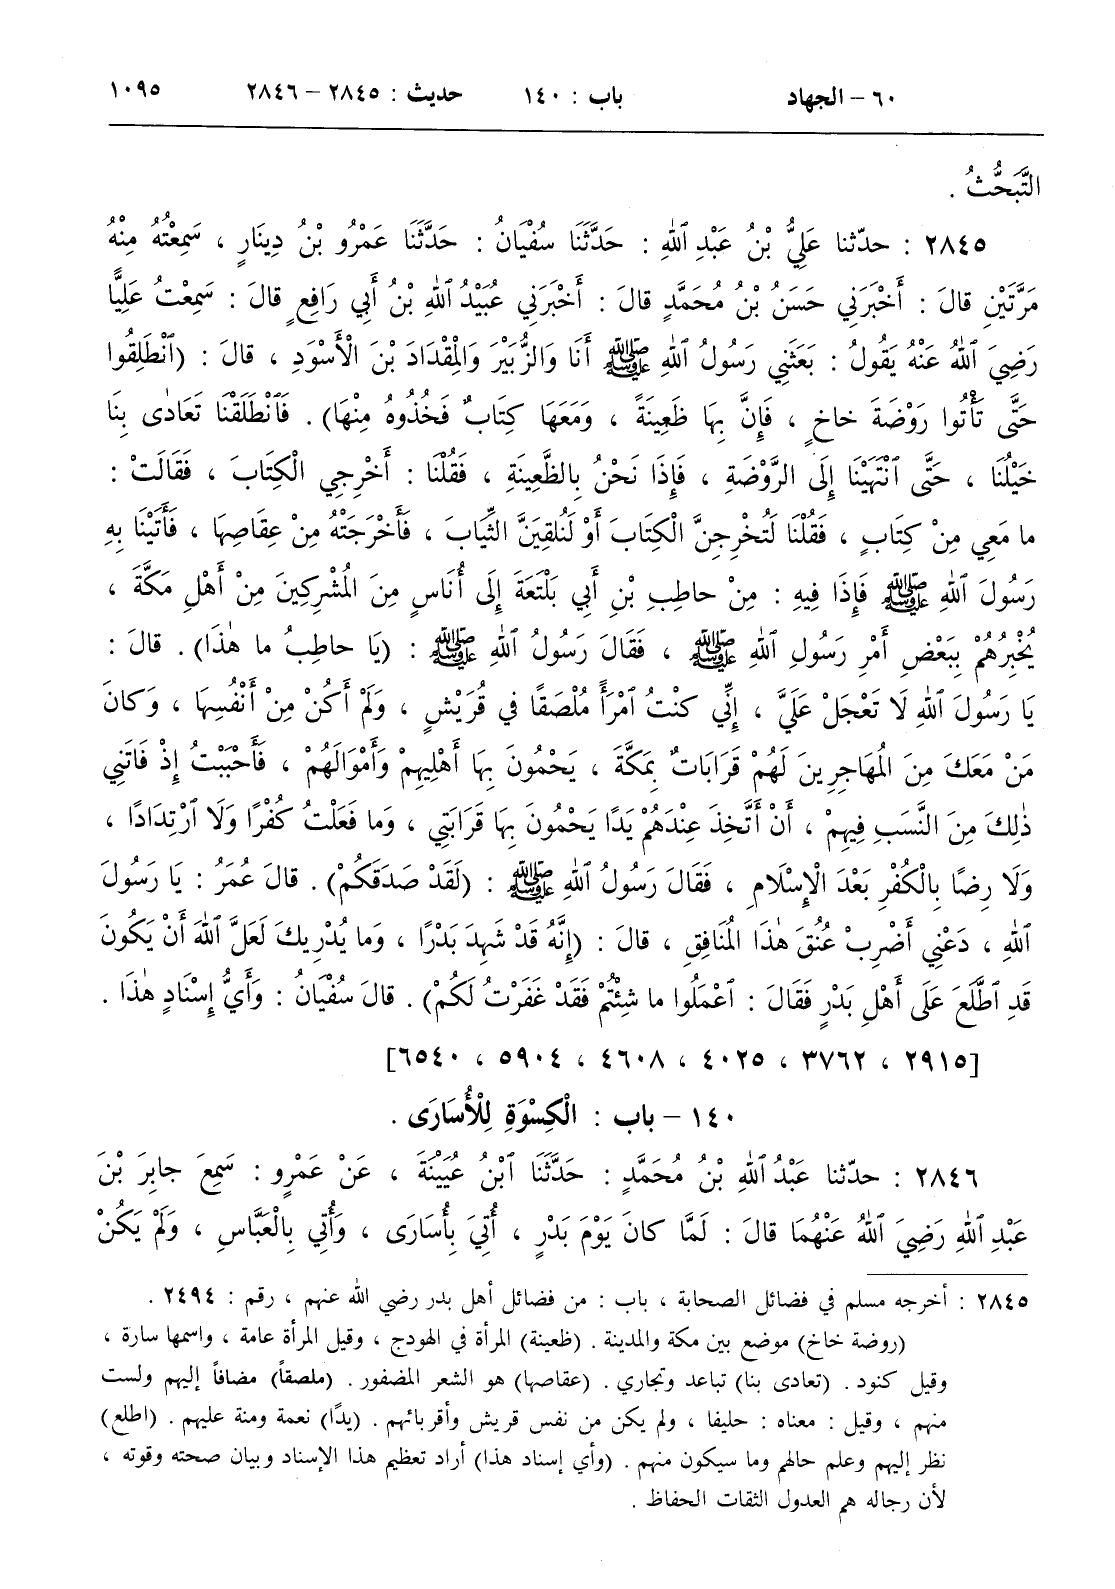 ٦٠ - الجهاد باب : ١٤٠ حديث : ٢٨٤٥ - ٢٨٤٦ ١٠٩٥
التَّبَحُّثُ .
٢٨٤٥ : حدّثنا عَلِيُّ بْنُ عَبْدِ ٱللهِ : حَدَّثَنَا سُفْيَانُ : حَدَّثَنَا عَمْرُو بْنُ دِينَارٍ ، سَمِعْتُهُ مِنْهُ
مَرَّتَيْنِ قالَ : أَخْبَرَنِي حَسَنُ بْنُ مُحَمَّدٍ قالَ : أَخْبَرَنِي عُبَيْدُ ٱللهِ بْنُ أَبِي رَافِعٍ قالَ : سَمِعْتُ عَلِيًّا
رَضِيَ ٱللهُ عَنْهُ يَقُولُ : بَعَثَنِي رَسُولُ ٱللهِ ﷺ أَنَا وَالزُّبَيْرَ وَالْمِقْدَادَ بْنَ الْأَسْوَدِ ، قالَ : (ٱنْطَلِقُوا
حَتَّى تَأْتُوا رَوْضَةَ خاخٍ ، فَإِنَّ بِهَا ظَعِينَةً ، وَمَعَهَا كِتَابٌ فَخُذُوهُ مِنْهَا) . فَٱنْطَلَقْنَا تَعَادٰى بِنَا
خَيْلُنَا ، حَتَّى ٱنْتَهَيْنَا إِلَى الرَّوْضَةِ ، فَإِذَا نَحْنُ بِالظَّعِينَةِ ، فَقُلْنَا : أَخْرِجِي الْكِتَابَ ، فَقَالَتْ :
ما مَعِي مِنْ كِتَابٍ ، فَقُلْنَا لَتُخْرِجِنَّ الْكِتَابَ أَوْ لَنُلْقِيَنَّ الثِّيَابَ ، فَأَخْرَجَتْهُ مِنْ عِقَاصِهَا ، فَأَتَيْنَا بِهِ
رَسُولَ ٱللهِ ﷺ فَإِذَا فِيهِ : مِنْ حاطِبِ بْنِ أَبِي بَلْتَعَةَ إِلَى أُنَاسٍ مِنَ الْمُشْرِكِينَ مِنْ أَهْلِ مَكَّةَ ،
يُخْبِرُهُمْ بِبَعْضِ أَمْرِ رَسُولِ ٱللهِ ﷺ ، فَقَالَ رَسُولُ ٱللهِ ﷺ : (يَا حاطِبُ ما هٰذَا) . قالَ :
يَا رَسُولَ ٱللهِ لَا تَعْجَلْ عَلَيَّ ، إِنِّي كُنْتُ ٱمْرَأً مُلْصَقًا فِي قُرَيْشٍ ، وَلَمْ أَكُنْ مِنْ أَنْفُسِهَا ، وَكانَ
مَنْ مَعَكَ مِنَ الْمُهَاجِرِينَ لَهُمْ قَرَابَاتٌ بِمَكَّةَ ، يَحْمُونَ بِهَا أَهْلِيهِمْ وَأَمْوَالَهُمْ ، فَأَحْبَبْتُ إِذْ فَاتَنِي
ذٰلِكَ مِنَ النَّسَبِ فِيهِمْ ، أَنْ أَتَّخِذَ عِنْدَهُمْ يَدًا يَحْمُونَ بِهَا قَرَابَتِي ، وَما فَعَلْتُ كُفْرًا وَلَا ٱرْتِدَادًا ،
وَلَا رِضًا بِالْكُفْرِ بَعْدَ الْإِسْلَامِ ، فَقَالَ رَسُولُ ٱللهِ ﷺ : (لَقَدْ صَدَقَكُمْ) . قالَ عُمَرُ : يَا رَسُولَ
ٱللهِ ، دَعْنِي أَضْرِبْ عُنُقَ هٰذَا الْمُنَافِقِ ، قالَ : (إِنَّهُ قَدْ شَهِدَ بَدْرًا ، وَما يُدْرِيكَ لَعَلَّ ٱللهَ أَنْ يَكُونَ
قَدِ ٱطَّلَعَ عَلَى أَهْلِ بَدْرٍ فَقَالَ : ٱعْمَلُوا ما شِئْتُمْ فَقَدْ غَفَرْتُ لَكُمْ) . قالَ سُفْيَانُ : وَأَيُّ إِسْنَادٍ هٰذَا .
[٢٩١٥ ، ٣٧٦٢ ، ٤٠٢٥ ، ٤٦٠٨ ، ٥٩٠٤ ، ٦٥٤٠]
١٤٠ - باب : الْكِسْوَةِ لِلْأُسَارَى .
٢٨٤٦ : حدّثنا عَبْدُ ٱللهِ بْنُ مُحَمَّدٍ : حَدَّثَنَا ٱبْنُ عُيَيْنَةَ ، عَنْ عَمْرٍو : سَمِعَ جابِرَ بْنَ
عَبْدِ ٱللهِ رَضِيَ ٱللهُ عَنْهُمَا قالَ : لَمَّا كانَ يَوْمَ بَدْرٍ ، أُتِيَ بِأُسَارَى ، وَأُتِيَ بِالْعَبَّاسِ ، وَلَمْ يَكُنْ
٢٨٤٥ : أخرجه مسلم في فضائل الصحابة ، باب : من فضائل أهل بدر رضي الله عنهم ، رقم : ٢٤٩٤ .
(روضة خاخ) موضع بين مكة والمدينة . (ظعينة) المرأة في الهودج ، وقيل المرأة عامة ، واسمها سارة ،
وقيل كنود . (تعادى بنا) تباعد وتجاري . (عقاصها) هو الشعر المضفور . (ملصقاً) مضافاً إليهم ولست
منهم ، وقيل : معناه : حليفا ، ولم يكن من نفس قريش وأقربائهم . (يدًا) نعمة ومنة عليهم . (اطلع)
نظر إليهم وعلم حالهم وما سيكون منهم . (وأي إسناد هذا) أراد تعظيم هذا الإسناد وبيان صحته وقوته ،
لأن رجاله هم العدول الثقات الحفاظ .